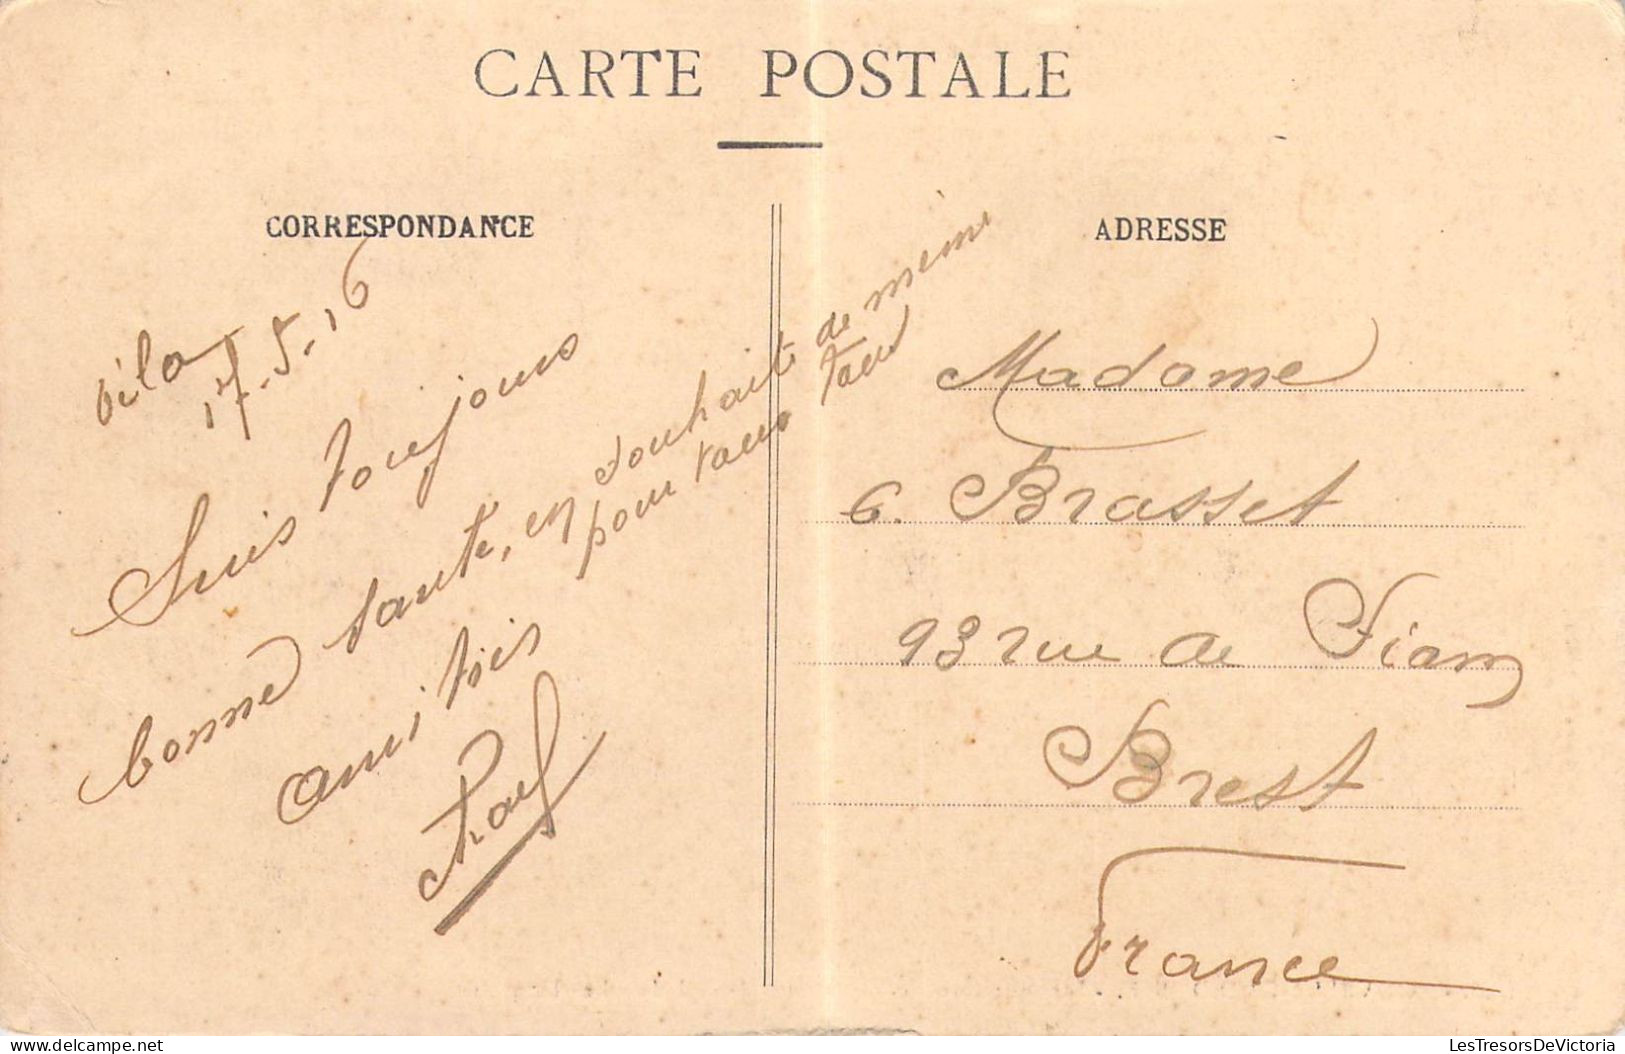 CARTE POSTALE
CORRESPONDANCE
17-5-16
Suis toujours
bonne santé, en souhaite de même
pour tous tous
amitiés
ADRESSE
Madame
Brasset
93 rue de Siam
Brest
France
LesTresorsDeVictoria